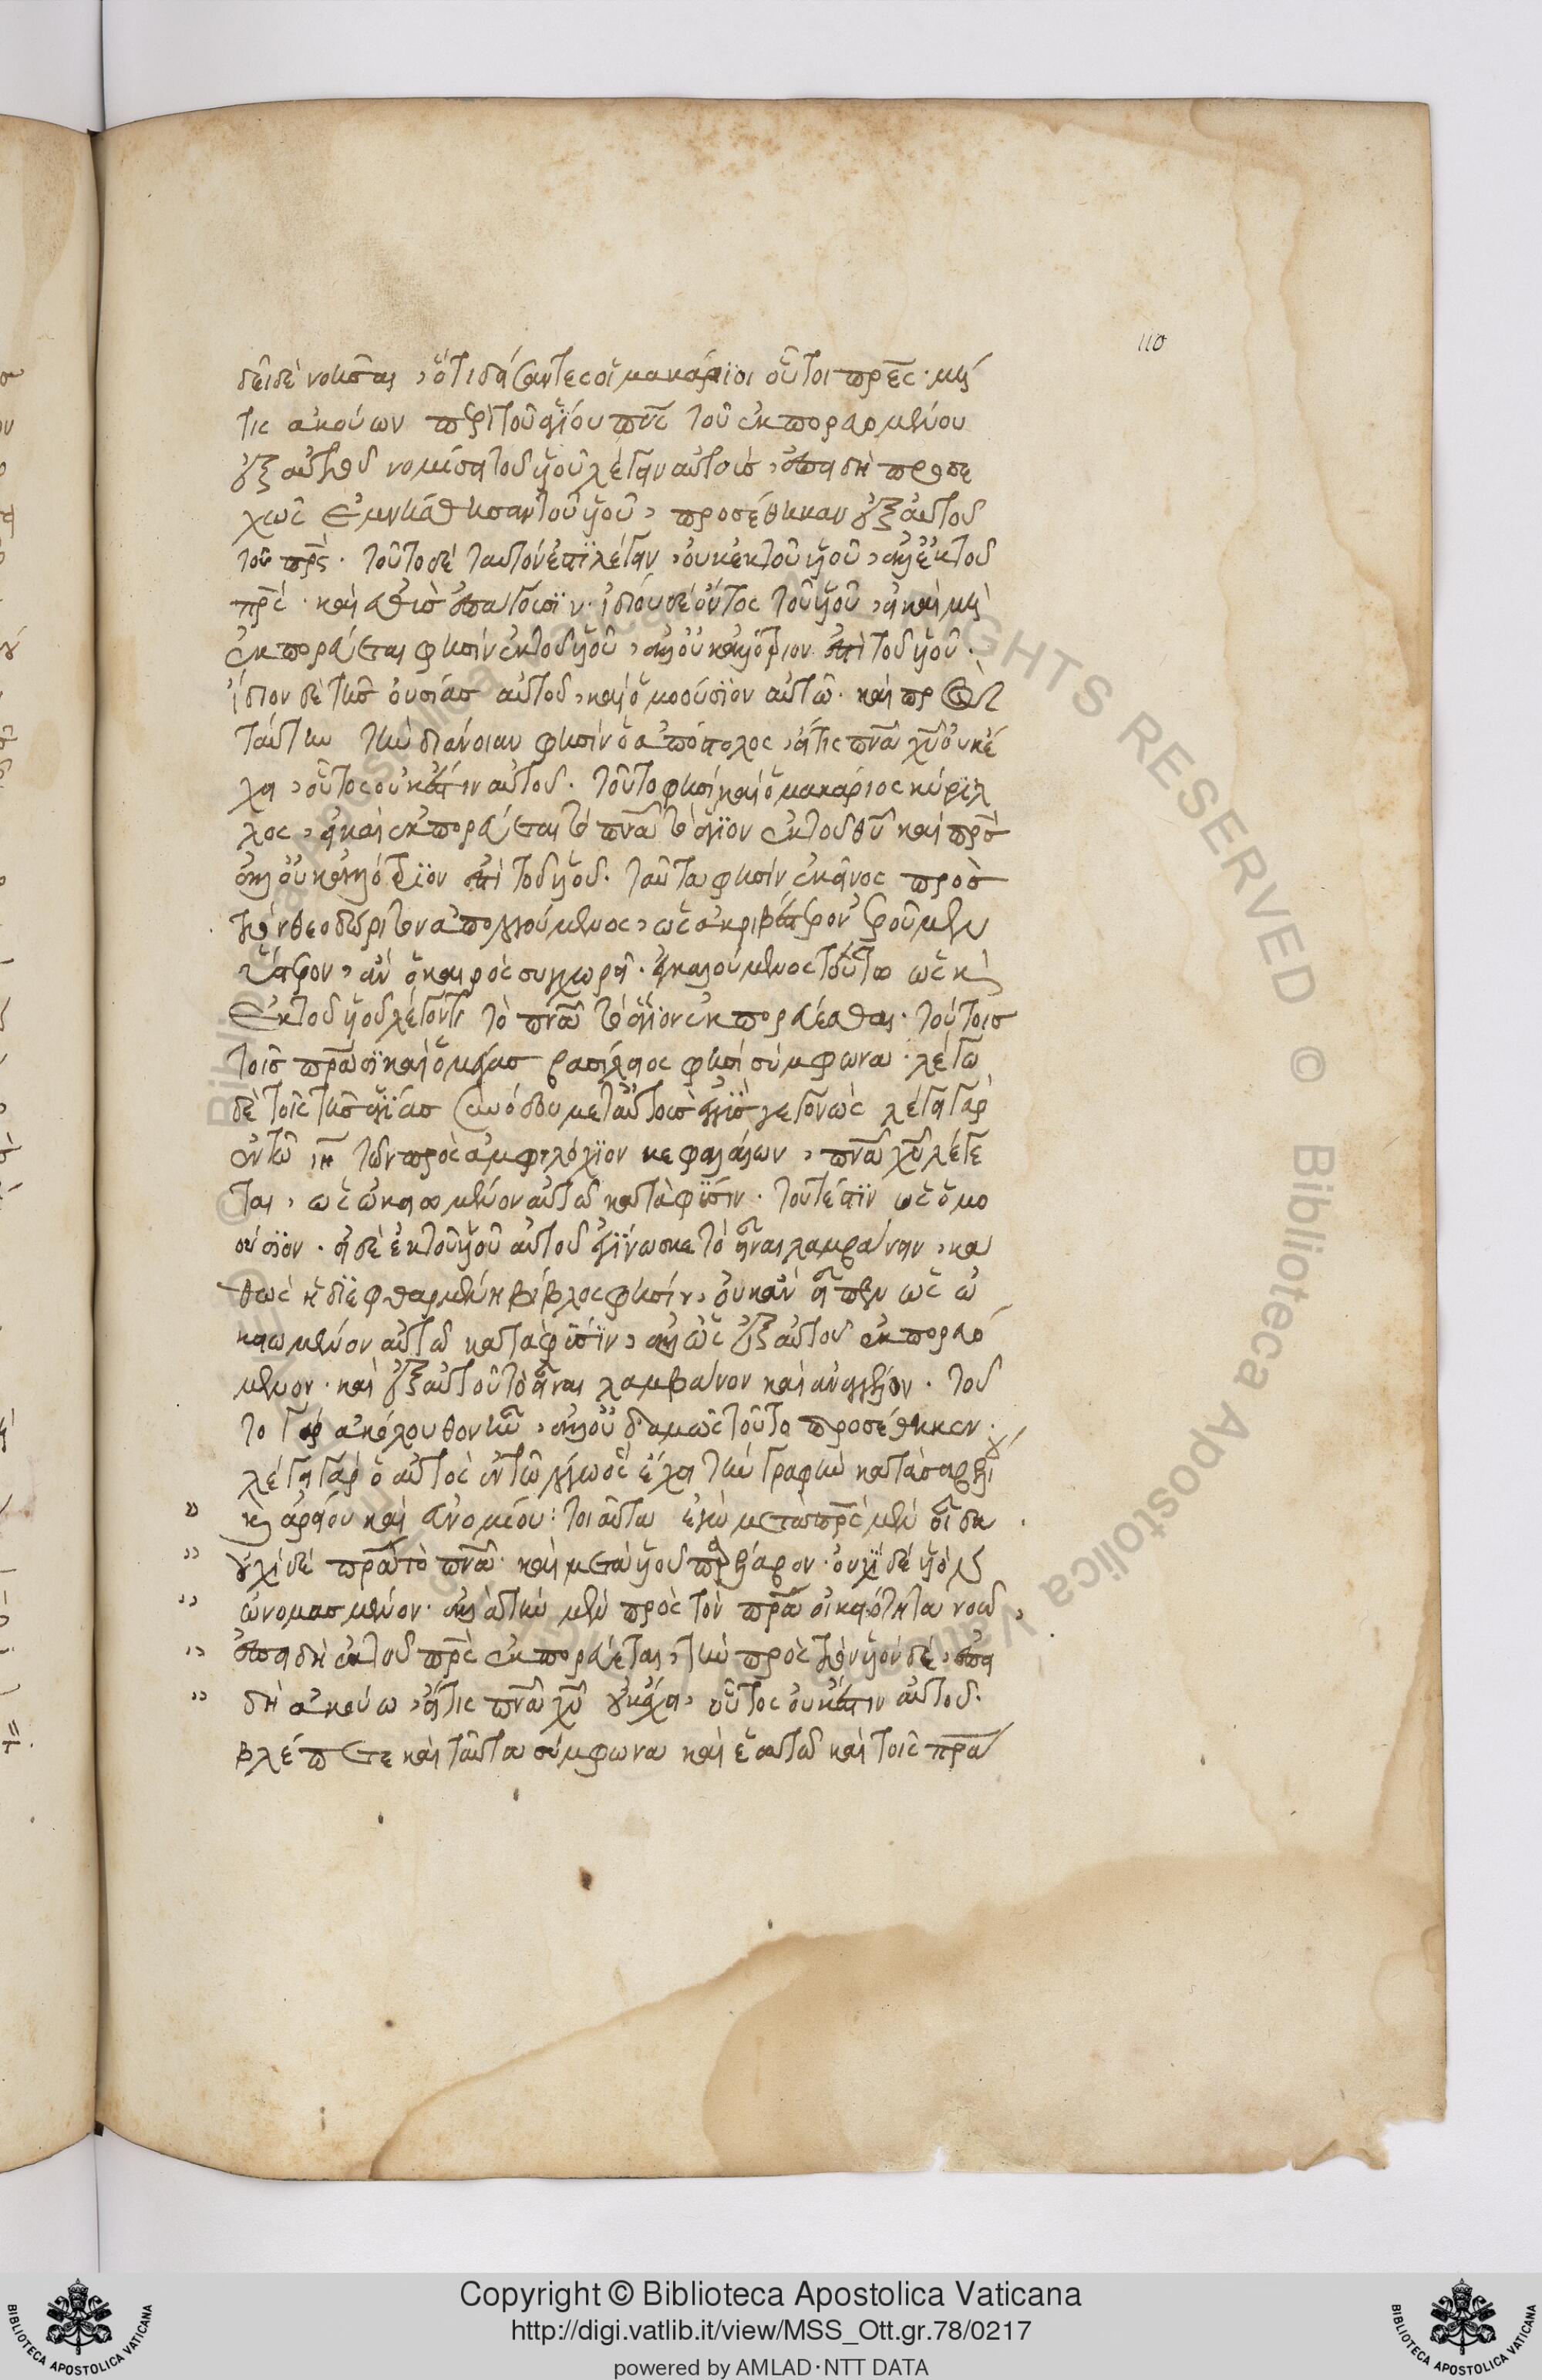 110
δεῖ δὲ νοῆσαι, ὅτι δείσαντες οἱ μακάριοι οὗτοι πρες· μή
τις ἀκούων περὶ τοῦ ἁγίου πνς τοῦ ἐκπορευομένου
ἐξ αὐτοῦ νομίσῃ τοῦ υἱοῦ λέγειν αὐτοὺς, ἐπειδὴ προσε
χῶς ἐμνήσθησαν τοῦ υἱοῦ, προσέθηκαν ἐξ αὐτοῦ
τοῦ πρς. τοῦτο δέ ταυτόν ἐστι λέγειν, οὐκ ἐκ τοῦ υἱοῦ, ἀλλ' ἐκ τοῦ
πρς· καὶ αὖθις ἐπάγουσιν. ἰδίου δέ ὄντος τοῦ υἱοῦ, εἰ καὶ μὴ
ἐκπορεύεται φησὶν ἐκ τοῦ υἱοῦ, ἀλλ' οὐκ ἀλλότριον ἐστὶ τοῦ υἱοῦ.
ἴδιον δὲ τῆς οὐσίας αὐτοῦ, καὶ ὁμοούσιον αὐτῶ. καὶ
ταύτην τὴν διάνοιαν φησὶν ὁ ἀπόστολος, εἴ τις πνα χυ οὐκ ἔ
χει, οὗτος οὐκ ἔστιν αὐτοῦ. τοῦτο φησὶ καὶ ὁ μακάριος κύριλ
λος, εἰ καὶ ἐκπορεύεται τὸ πνα τὸ ἅγιον ἐκ τοῦ θυ καὶ πρς
ἀλλ' οὐκ ἀλλότριον ἐστὶ τοῦ υἱοῦ. ταῦτα φησὶν ἐκεῖνος πρὸς
τὸν θεοδώριτον ἀπολογούμενος, ὡς ἀκριβέστερον ἐροῦμεν
ὕστερον, ἂν ὁ καιρὸς συγχωρῇ. ἐγκαλούμενος τοῦτο ὡς κ
ἐκ τοῦ υἱοῦ λέγοντι τὸ πνα τὸ ἅγιον ἐκπορεύεσθαι. τούτοις
τοῖς πρασι καὶ ὁ μέγας βασίλειος φησὶ σύμφωνα. λέγω
δὲ τοῖς τῆς ἁγίας συνόδου μετ' αὐτοὺς ἐγγὺς γεγονώς λέγει γὰρ
ἐν τῶ ιη τῶν πρὸς ἀμφιλόχιον κεφαλαίων, πνα χυ λέγε
ται, ὡς ὠκειωμένον αὐτῶ κατὰ φύσιν. τουτέστιν ὡς ὁμο
ούσιον. εἰ δὲ ἐκ τοῦ υἱοῦ αὐτοῦ ἐγίνωσκε τὸ εἶναι λαμβάνειν, κα
θὼς ἡ διεφθαρμένη βίβλος φησίν, οὐκ ἂν εἶπεν ὡς ὠ
κειωμένον αὐτῶ κατὰ φύσιν, ἀλλ' ὡς ἐξ αὐτοῦ ἐκπορευό
μενον. καὶ ἐξ αὐτοῦ τὸ εἶναι λαμβάνον καὶ ἀναγγέλλον. τοῦ
το γὰρ ἀκόλουθον ἦν, ἀλλ' οὐδαμῶς τοῦτο προσέθηκεν.
λέγει γὰρ ὁ αὐτὸς ἐν τῶ λόγω ὃς ἔχει τὴν γραφὴν κατὰ σαβελλί
κ ἀρείου καὶ ἀνομίου: τοιαῦτα ἐγὼ μετὰ πρς μὲν οἶδα
οὐχὶ δέ πρα τὸ πνα· καὶ μετὰ υἱοῦ παρέλαβον. οὐχὶ δέ υἱὸν
ὠνομασμένον. ἀλλὰ τὴν μὲν πρὸς τὸν πρα οἰκειότητα νοῶ,
ἐπειδὴ ἐκ τοῦ πρς ἐκπορεύεται, τὴν πρὸς τὸν υἱὸν δέ, ἐπει
δὴ ἀκούω, εἴ τις πνα χυ οὐκ ἔχει, οὗτος οὐκ ἔστιν αὐτοῦ.
βλέπετε καὶ ταῦτα σύμφωνα καὶ ἑαυτῶ καὶ τοῖς πρα
Copyright © Biblioteca Apostolica Vaticana
http://digi.vatlib.it/view/MSS_Ott.gr.78/0217
powered by AMLAD·NTT DATA